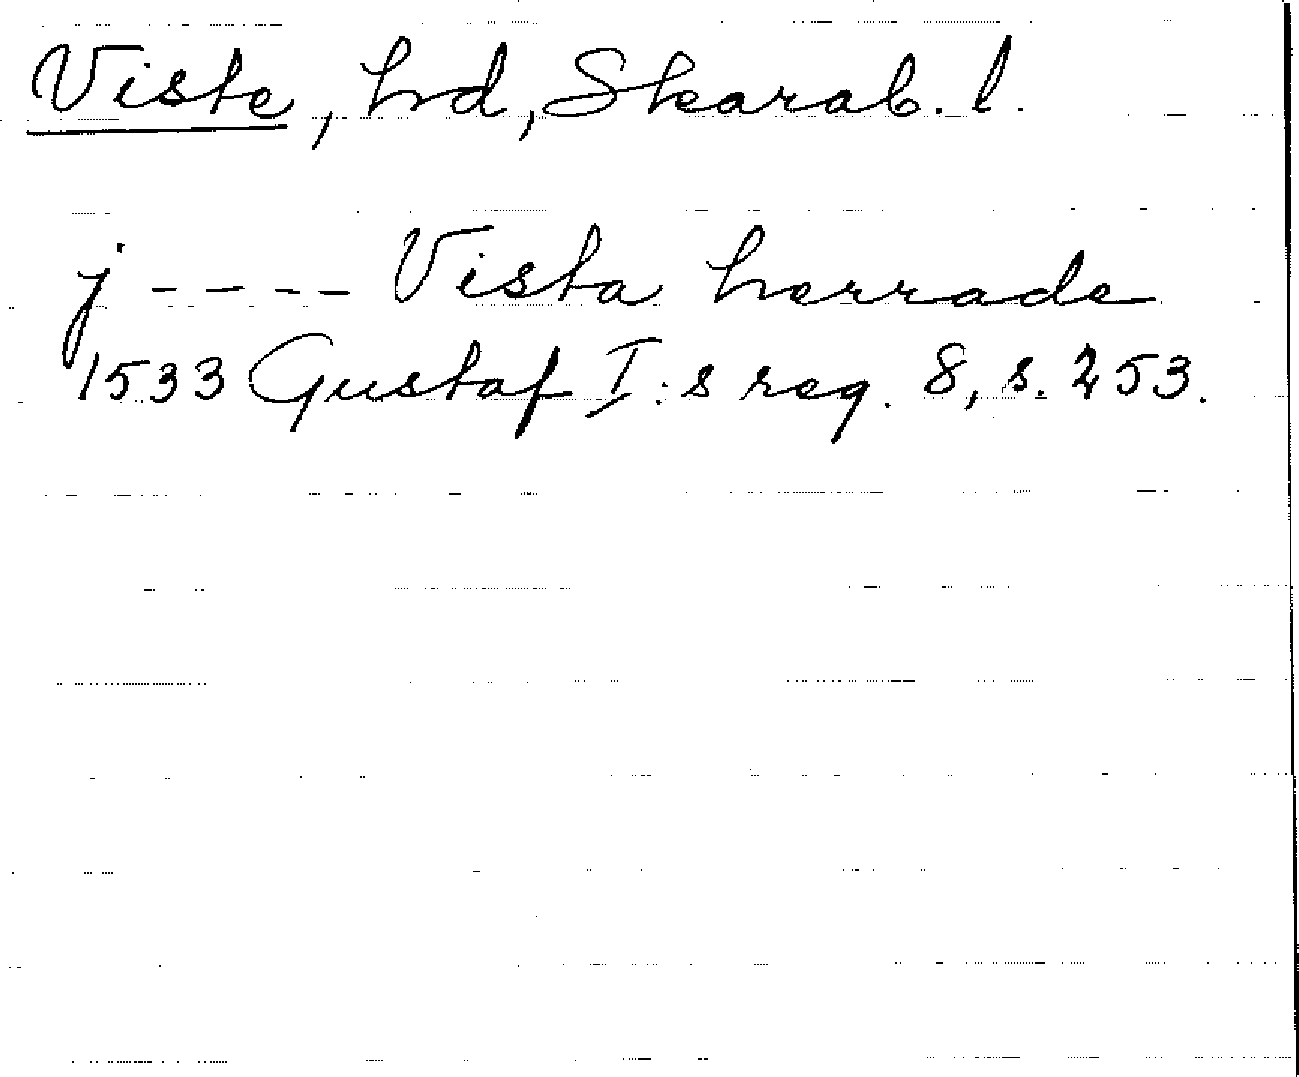 Viste, hrd, Skarab. l.
j ----- Vista herrade
1533 Gustaf I:s reg. 8, s. 253.